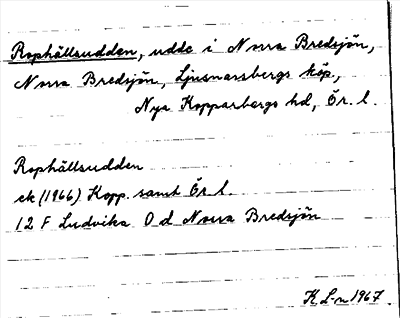 Rophällsudden, udde i Norra Bredsjön,
Norra Bredsjön, Ljusnarsbergs köp,
Nya Kopparbergs hd, Ör. l.
Rophällsudden
ek (1966) Kopp. samt Ör l.
12 F Ludvika 0 d Norra Bredsjön
K L-n 1967.